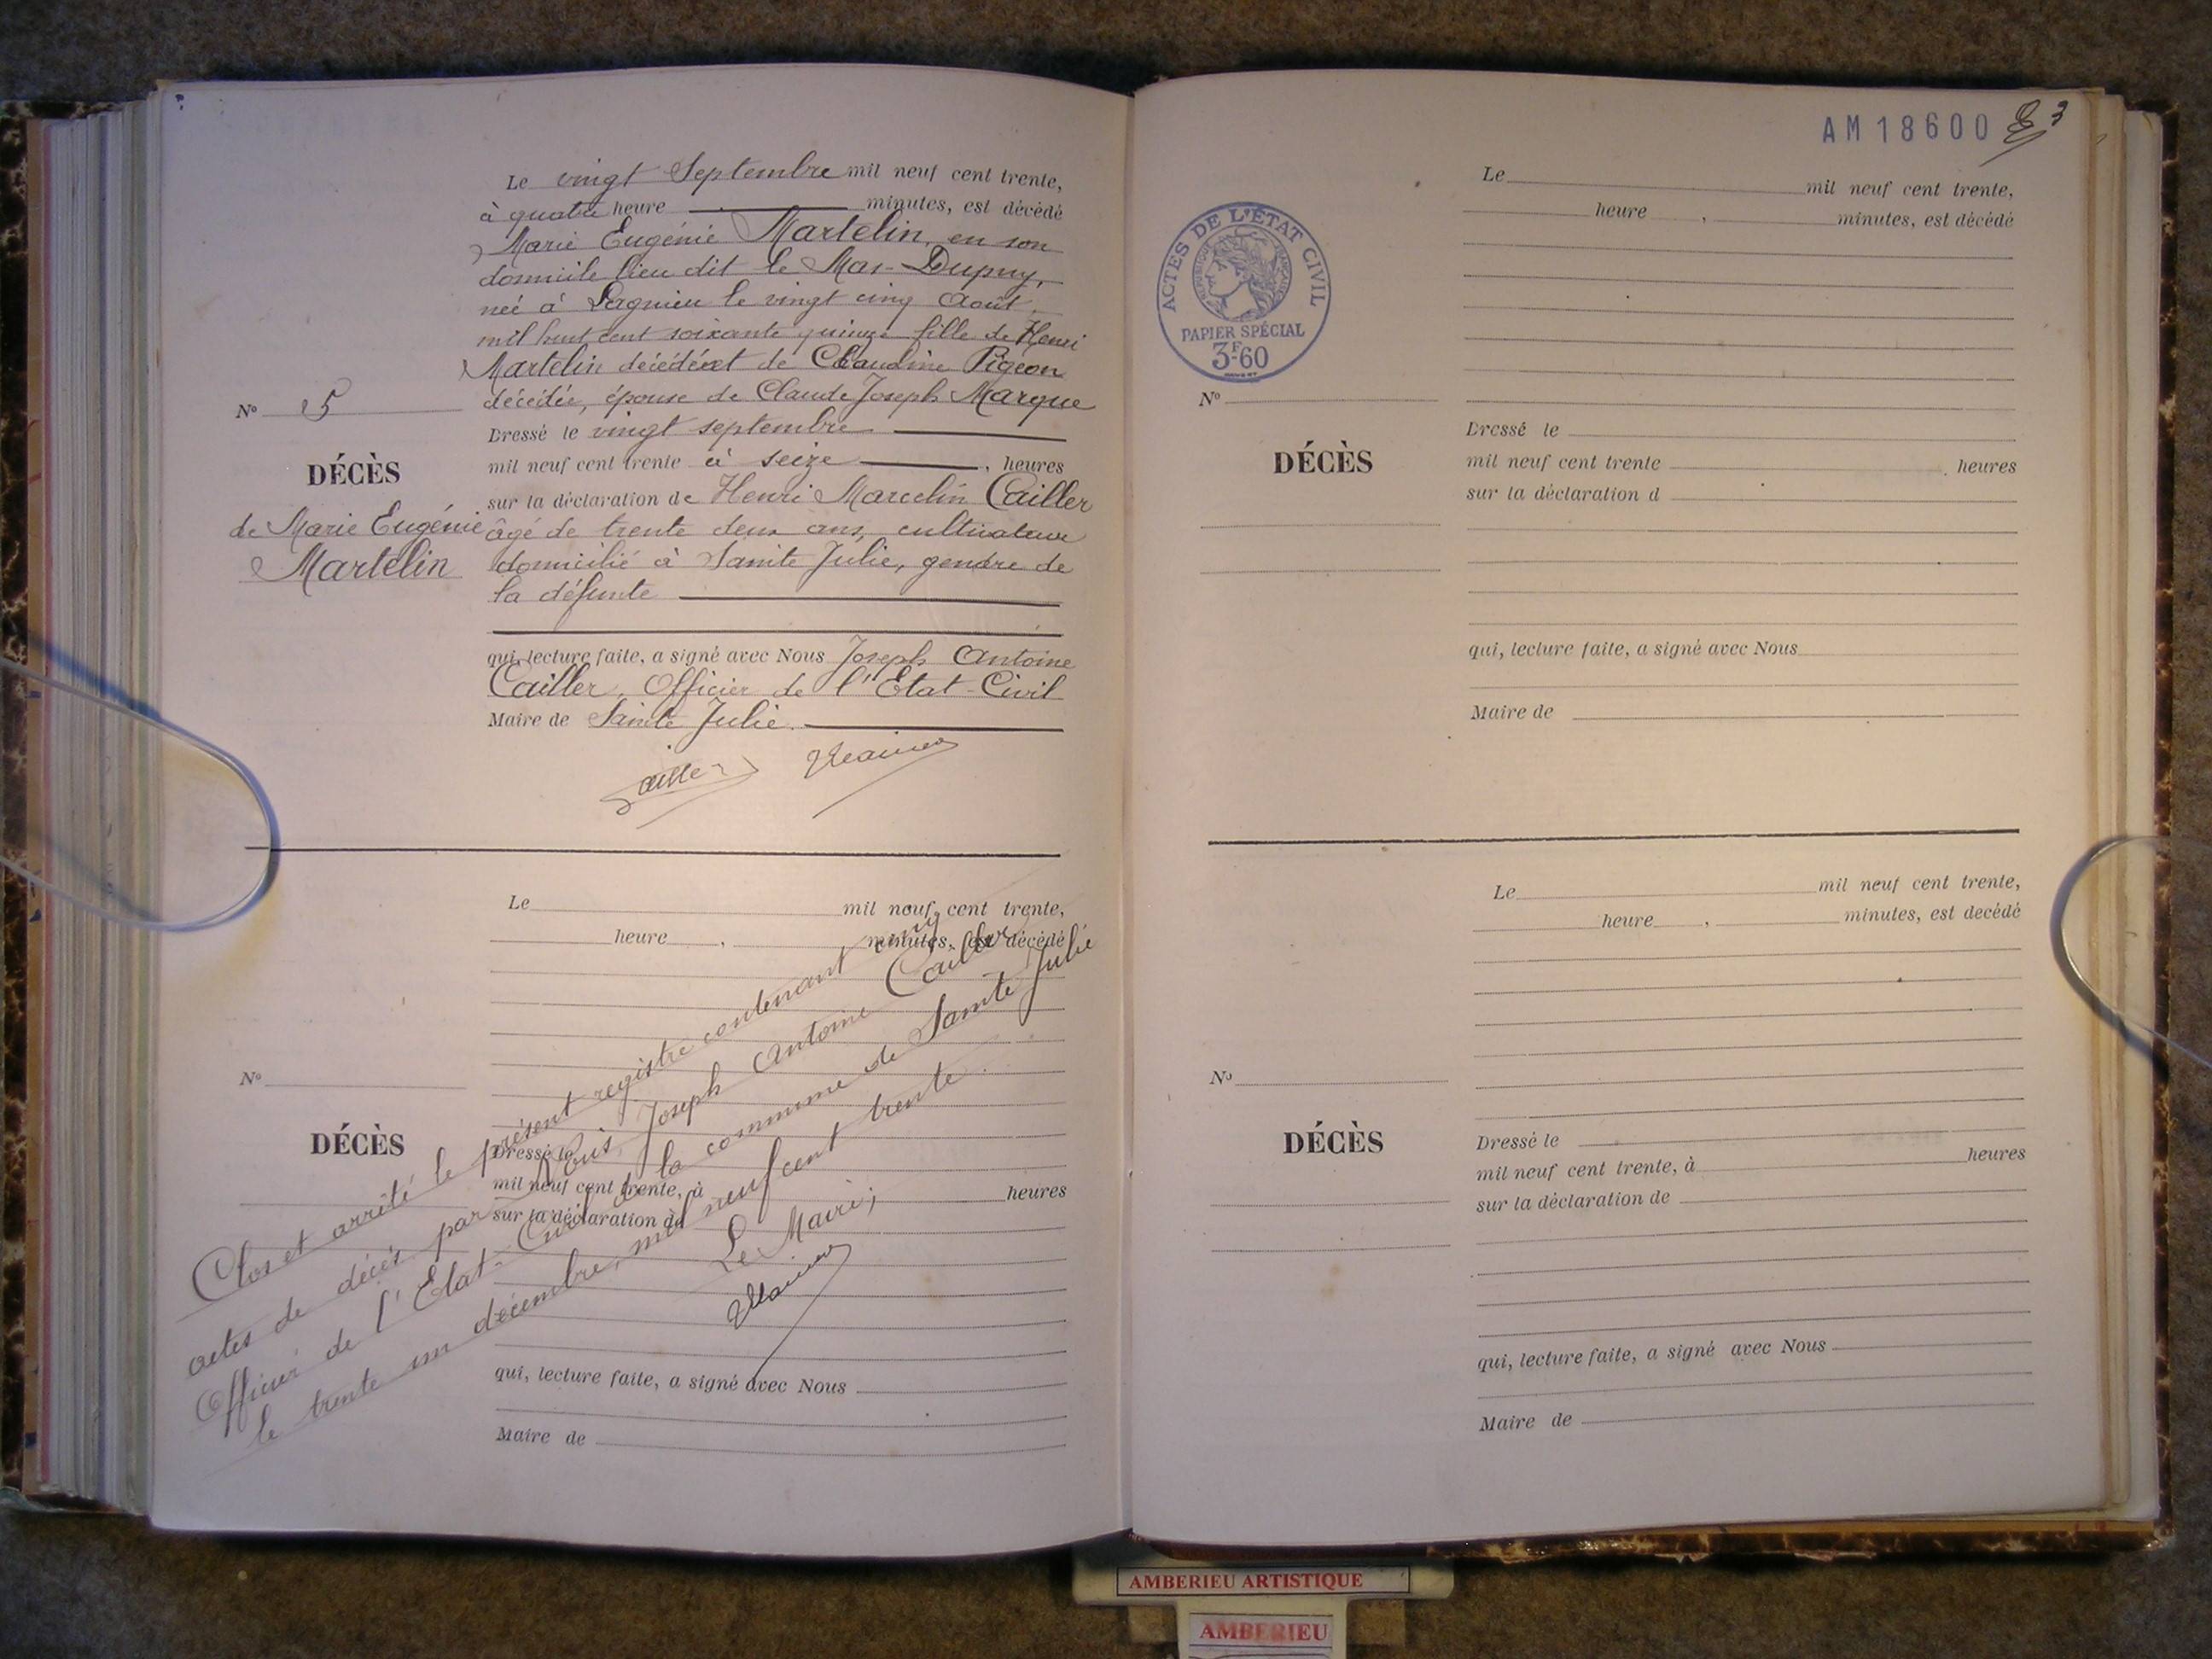 Le vingt Septembre mil neuf cent trente,
à quatre heure minutes, est décédé
Marie Eugénie Martelin, en son
domicile lieu dit le Mas-Dupuy,
née à Lagnieu le vingt cinq Août
mil huit cent soixante quinze fille de Henri
Martelin décédé et de Claudine Pigeon
décédée, épouse de Claude Joseph Marque
Nº 5
Dressé le vingt septembre
mil neuf cent trente à seize, heures
DÉCÈS
sur la déclaration de Henri Marcelin Cailler
de Marie Eugénie
Martelin
âgé de trente deux ans, cultivateur
domicilié à Sainte Julie, gendre de
la défunte
qui, lecture faite, a signé avec Nous Joseph Antoine
Cailler, Officier de l'Etat-Civil
Maire de Sainte Julie.
Cailler
Le mil neuf cent trente,
heure , minutes, est décédé
Nº
DÉCÈS
Dressé le
mil neuf cent trente, à heures
sur la déclaration de
qui, lecture faite, a signé avec Nous
Maire de
Clos et arrêté le présent registre contenant cinq
actes de décès par Nous, Joseph Antoine Cailler
Officier de l'Etat-Civil de la commune de Sainte Julie
le trente un décembre, mil neuf cent trente.
Le Maire,
AM18600 3
Le mil neuf cent trente,
heure , minutes, est décédé
ACTES DE L'ÉTAT CIVIL
RÉPUBLIQUE FRANÇAISE
PAPIER SPÉCIAL
3F60
Nº
DÉCÈS
Dressé le
mil neuf cent trente heures
sur la déclaration d
qui, lecture faite, a signé avec Nous
Maire de
Le mil neuf cent trente,
heure , minutes, est decédé
Nº
DÉCÈS
Dressé le
mil neuf cent trente, à heures
sur la déclaration de
qui, lecture faite, a signé avec Nous
Maire de
AMBERIEU ARTISTIQUE
AMBERIEU